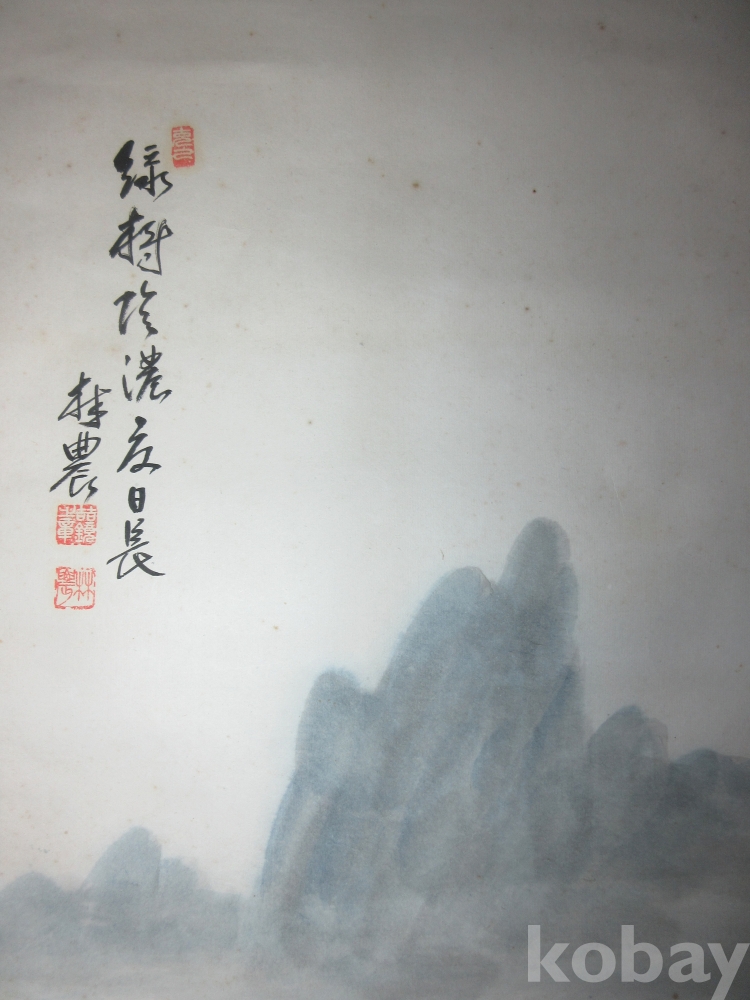 綠樹陰濃夏日長
林農
林農
kobay